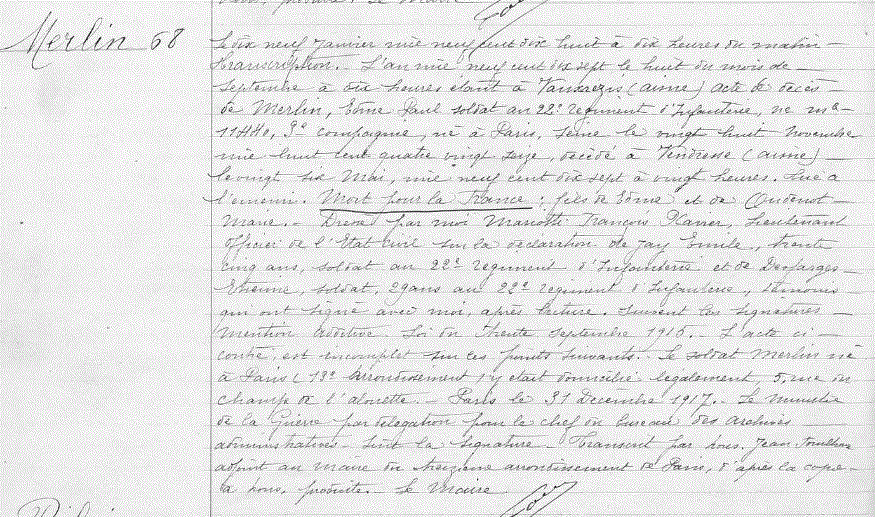 Merlin 68
Le dix neuf Janvier mil neuf cent dix huit à dix heures du matin —
Transcription. — L'an mil neuf cent dix sept le huit du mois de —
Septembre à dix heures étant à (aisne) acte de décès —
de Merlin, Edme Paul soldat au 22e régiment d'Infanterie, né ma-
11440, 9e compagnie, né à Paris, Seine le vingt huit novembre
mil huit cent quatre vingt seize, décédé à Vendresse (aisne) —
le vingt six Mai, mil neuf cent dix sept à vingt heures. Tué à
l'ennemi. Mort pour la France : fils de Edme et de
Marie. — Dressé par moi Mariotti François Xavier, Lieutenant
officier de l'Etat civil sur la déclaration de Jay Emile, trente
cinq ans, soldat au 22e régiment d'Infanterie et de Desfarges —
Etienne, soldat, 29 ans au 22e régiment d'Infanterie, témoins
qui ont signé avec moi, après lecture. Suivent les signatures —
Mention additive. Loi du trente septembre 1915. — L'acte ci —
contre, est incomplet sur ces points suivants. Le soldat Merlin né
à Paris (13e arrondissement) y était domicilié légalement, 5, rue du
champ de l'alouette. — Paris le 31 Décembre 1917. — Le Ministre
de la Guerre par délégation pour le chef du bureau des archives —
administratives — suit la signature — Transcrit par nous, Jean
adjoint au maire du treizième arrondissement de Paris, d'après la copie —
à nous, produite. — Le Maire